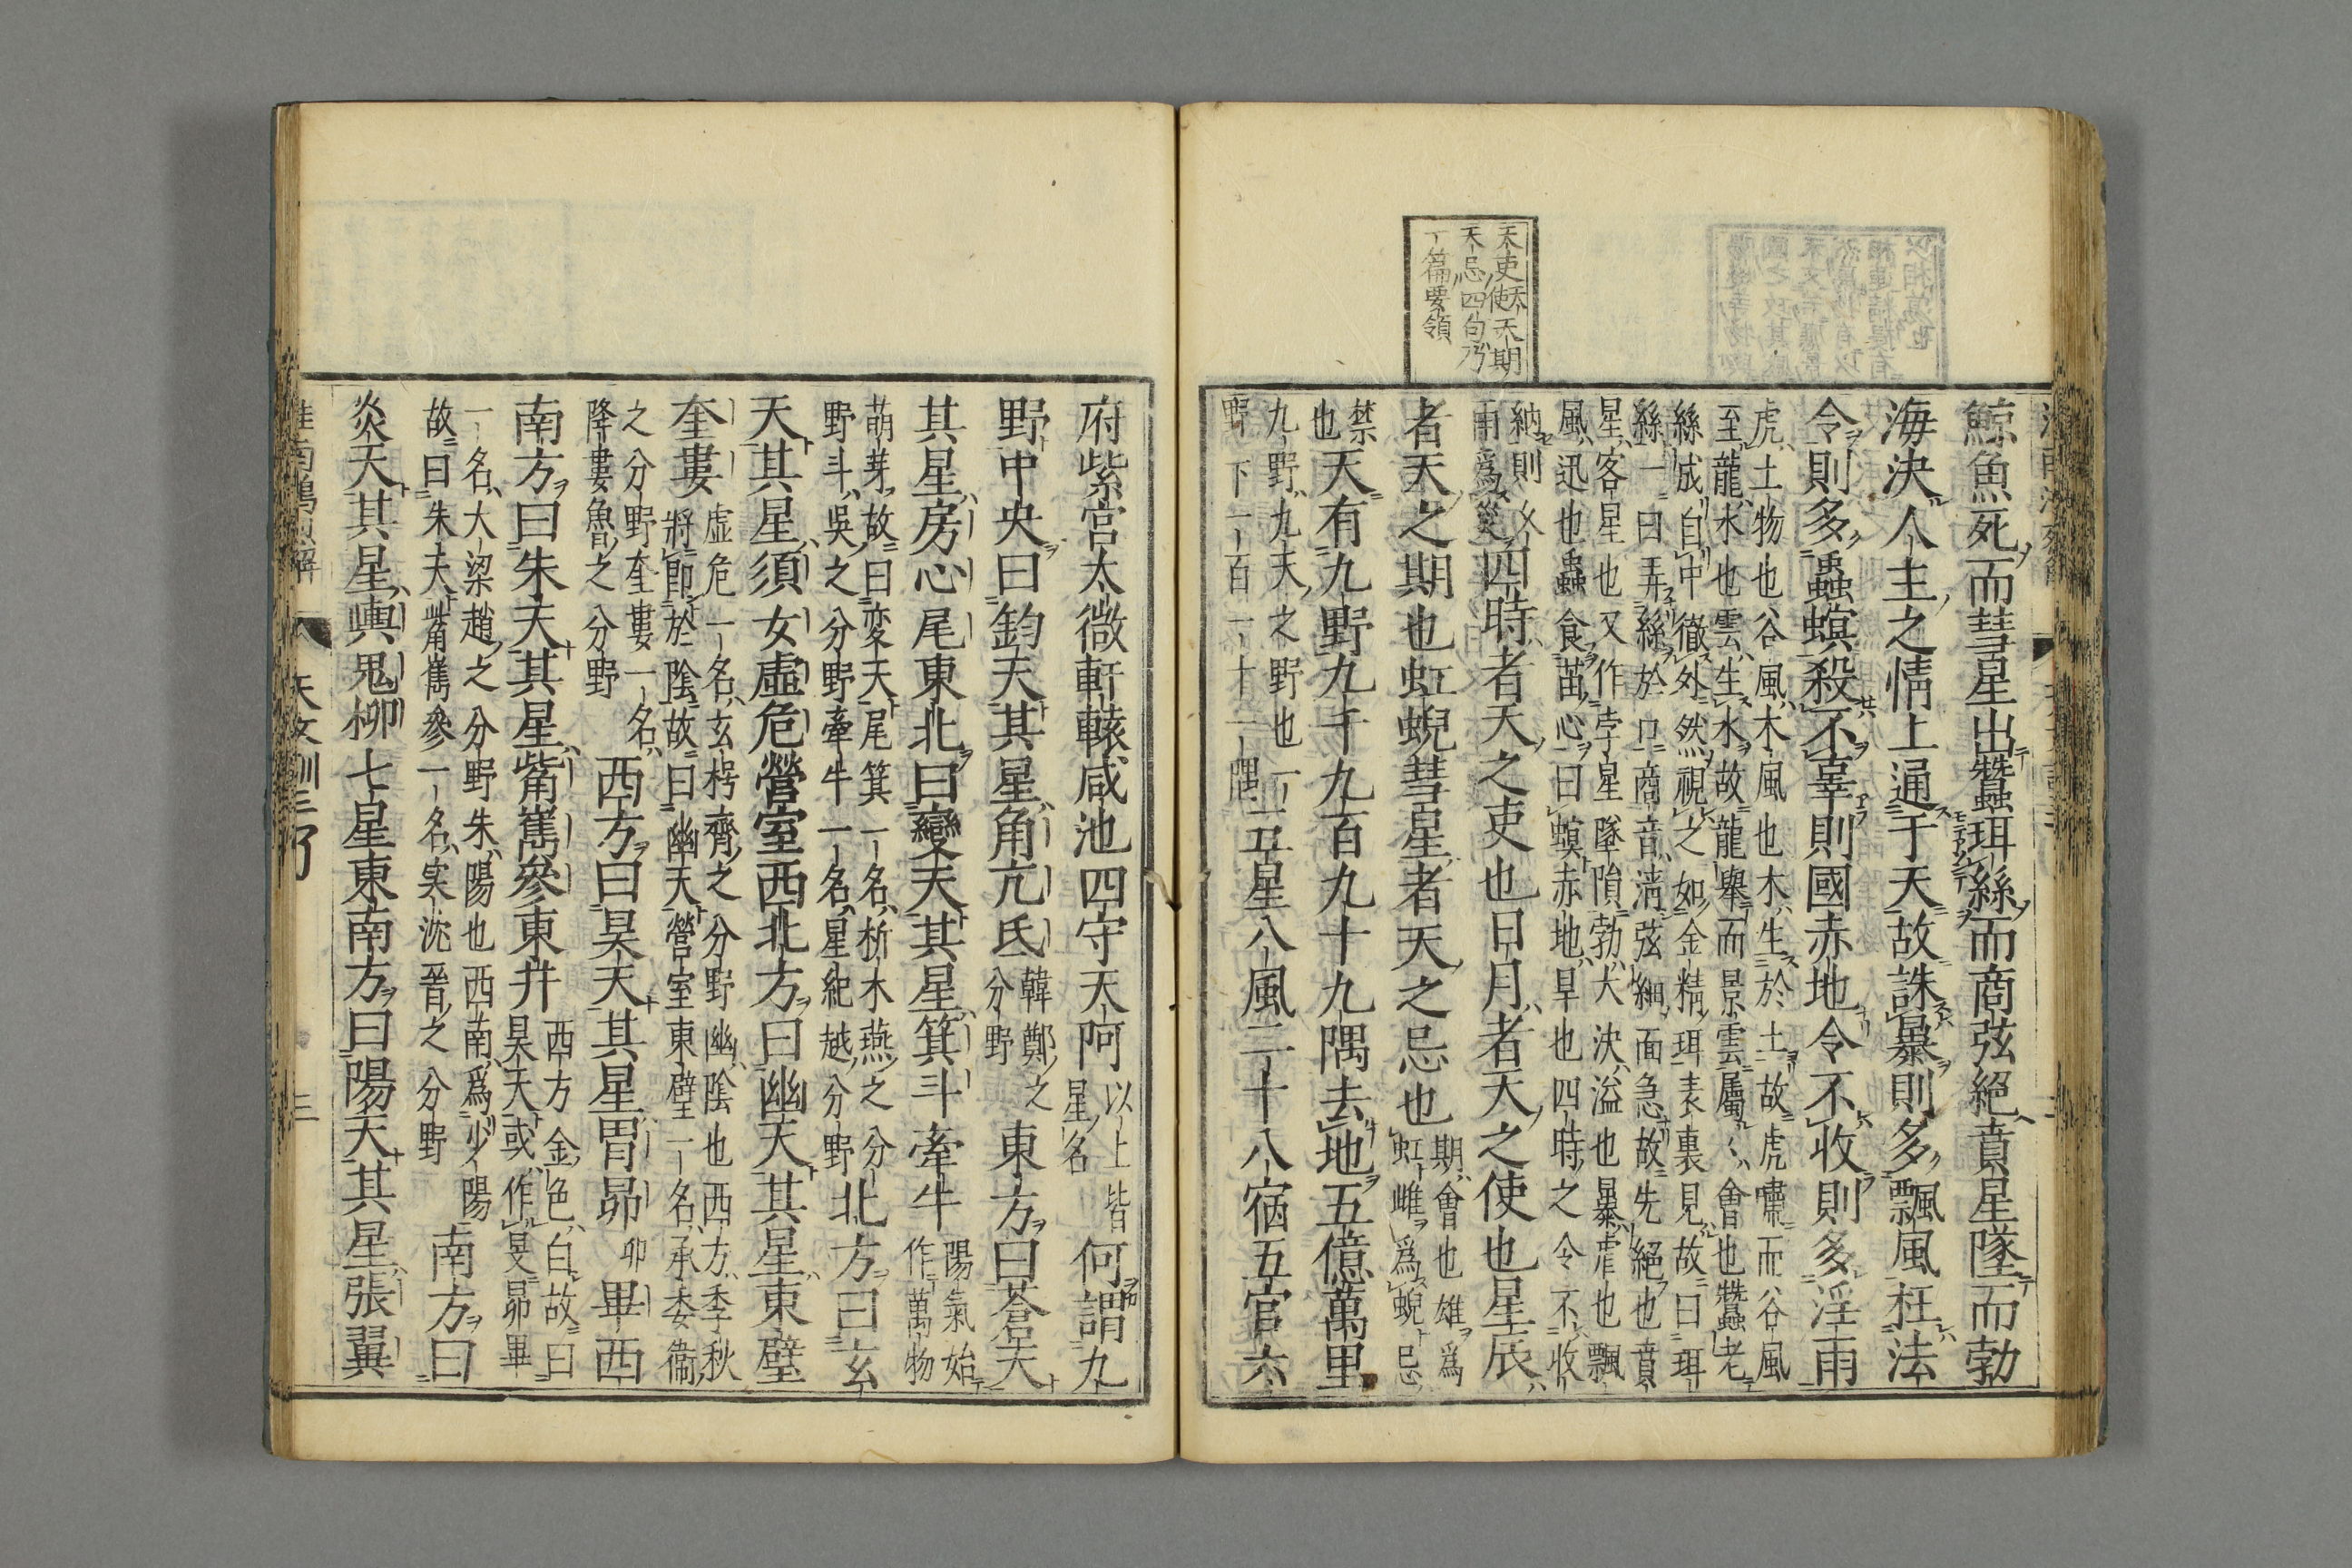 天吏天使天期
天忌四句乃
一篇要領
鯨魚死而彗星出蠶珥絲而商弦絕賁星墜而勃
海決人主之情上通于天故誅暴則多飄風枉法
令則多蟲螟殺不辜則國赤地令不收則多淫雨
虎土物也谷風木風也木生於土故虎嘯而谷風
至龍水也雲生水故龍舉而景雲屬〻會也蠶老
絲成自中徹外然視之如金精珥表裏見故曰珥
絲一曰弄絲於口商音淸弦細而急故先絕也賁
星客星也又作孛星墜隕勃大決溢也暴虐也飄
風迅也蟲食苗心曰螟赤地旱也四時之令不收
納則久
雨爲災四時者天之吏也日月者天之使也星辰
者天之期也虹蜺彗星者天之忌也
期會也雄爲
虹雌爲蜺忌
禁
也天有九野九千九百九十九隅去地五億萬里
九野九天之野也一
野下一百一十一隅
五星八風二十八宿五官六
府紫宮太微軒轅咸池四守天阿
以上皆
星名
何謂九
野中央曰鈞天其星角亢氐
韓鄭之
分野
東方曰蒼天
其星房心尾東北曰變天其星箕斗牽牛
陽氣始
作萬物
萌芽故曰変天尾箕一名析木燕之分
野斗吳之分野牽牛一名星紀越分野
北方曰玄
天其星須女虛危營室西北方曰幽天其星東壁
奎婁
虛危一名玄枵齊之分野幽陰也西方季秋
將即於陰故曰幽天營室東壁一名承委衞
之分野奎婁一名
降婁魯之分野
西方曰昊天其星胃昴
卯
畢西
南方曰朱天其星觜嶲參東井
西方金色白故曰
昊天或作旻昴畢
一名大梁趙之分野朱陽也西南爲少陽
故曰朱天觜嶲參一名実沈晉之分野
南方曰
炎天其星輿鬼柳七星東南方曰陽天其星張翼
天文訓三
三